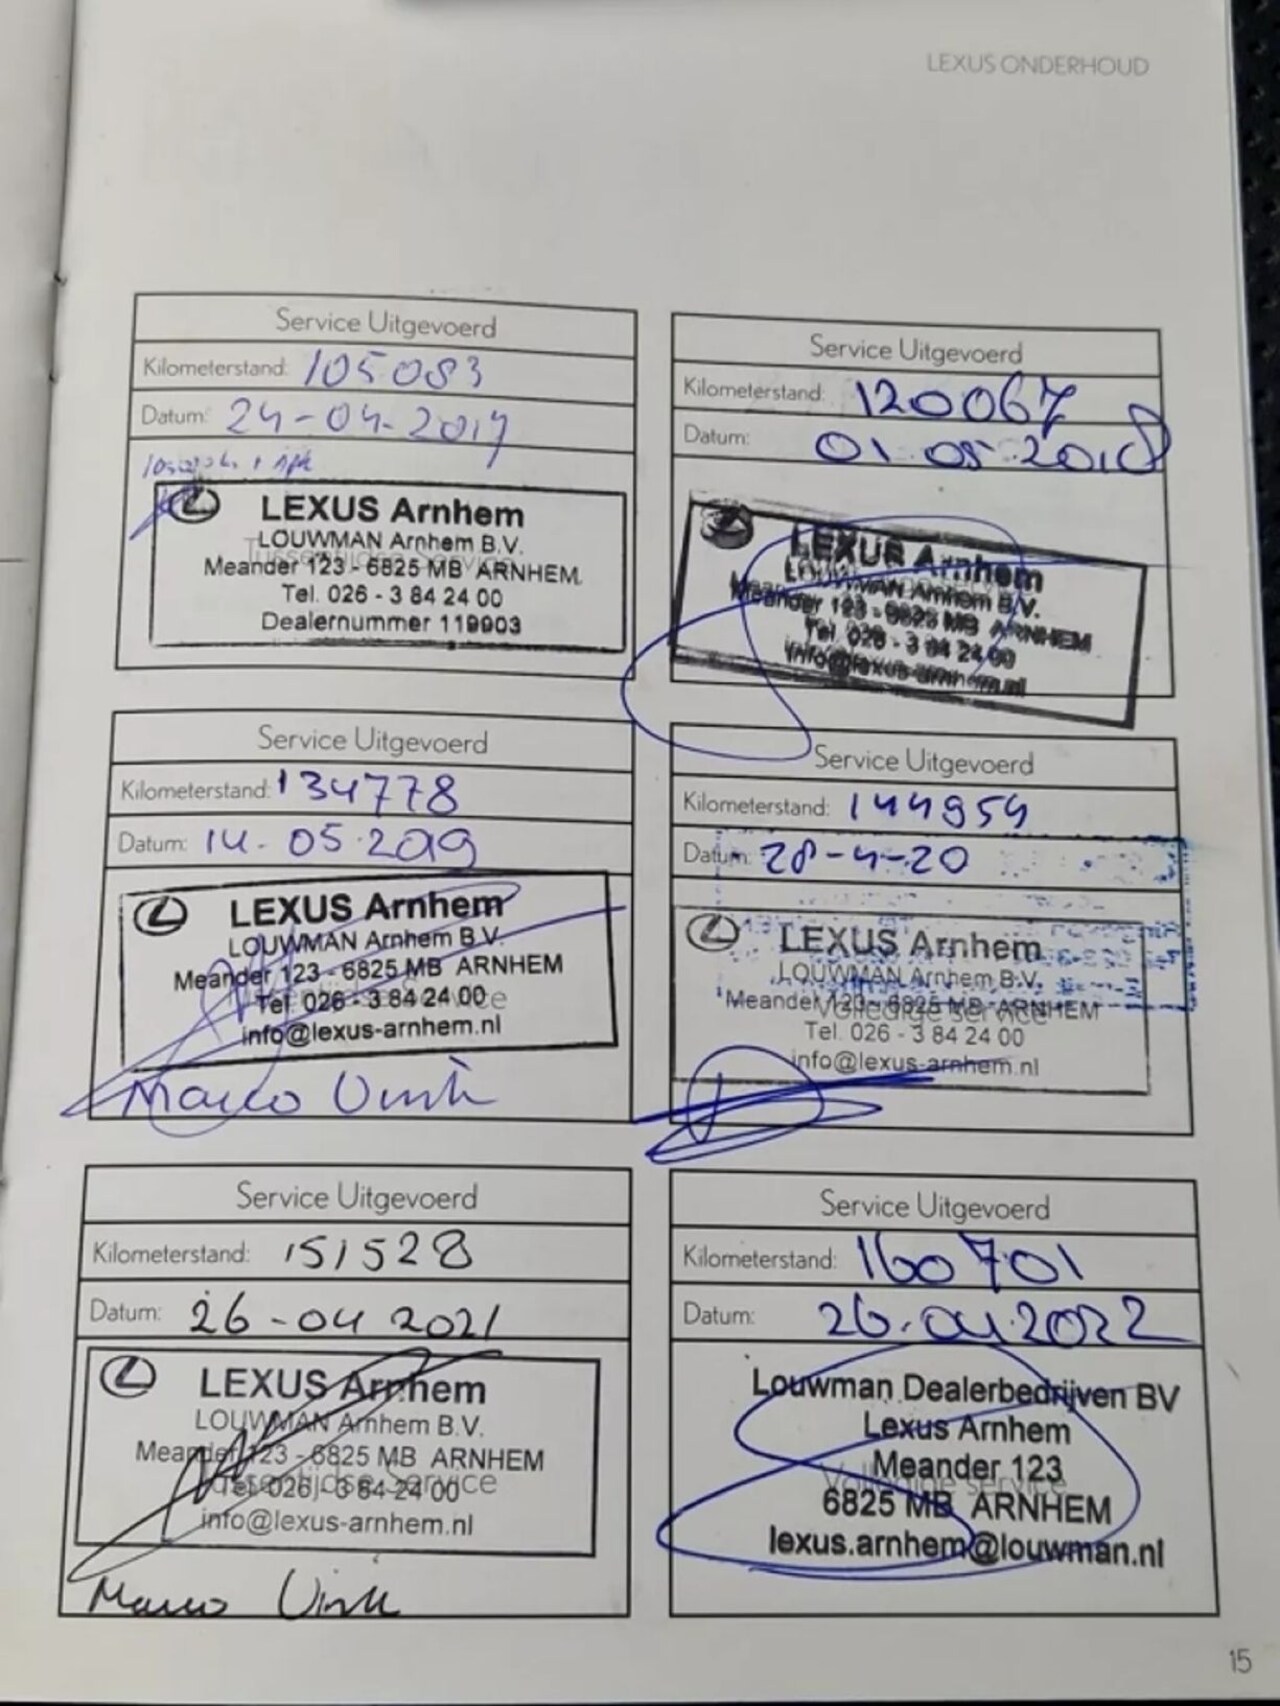 LEXUS ONDERHOUD
Service Uitgevoerd
Kilometerstand: 105083
Datum: 24-04-2017
LEXUS Arnhem
LOUWMAN Arnhem B.V.
Tussentijdse Service
Meander 123 - 6825 MB ARNHEM
Tel. 026 - 3 84 24 00
Dealernummer 119903
Service Uitgevoerd
Kilometerstand: 120067
Datum: 01.05.2018
LEXUS Arnhem
LOUWMAN Arnhem B.V.
Meander 123 - 6825 MB ARNHEM
Tel. 026 - 3 84 24 00
info@lexus-arnhem.nl
Service Uitgevoerd
Kilometerstand: 134778
Datum: 14.05.2019
LEXUS Arnhem
LOUWMAN Arnhem B.V.
Meander 123 - 6825 MB ARNHEM
Tel. 026 - 3 84 24 00
info@lexus-arnhem.nl
Marco Vink
Service Uitgevoerd
Kilometerstand: 144954
Datum: 28-4-20
LEXUS Arnhem
LOUWMAN Arnhem B.V.
Meander 123 - 6825 MB ARNHEM
Volledige service
Tel. 026 - 3 84 24 00
info@lexus-arnhem.nl
Service Uitgevoerd
Kilometerstand: 151528
Datum: 26-04 2021
LEXUS Arnhem
LOUWMAN Arnhem B.V.
Meander 123 - 6825 MB ARNHEM
Tussentijdse Service
Tel. 026 - 3 84 24 00
info@lexus-arnhem.nl
Marco Vink
Service Uitgevoerd
Kilometerstand: 160701
Datum: 26.04.2022
Louwman Dealerbedrijven BV
Lexus Arnhem
Meander 123
Volledige service
6825 MB ARNHEM
lexus.arnhem@louwman.nl
15